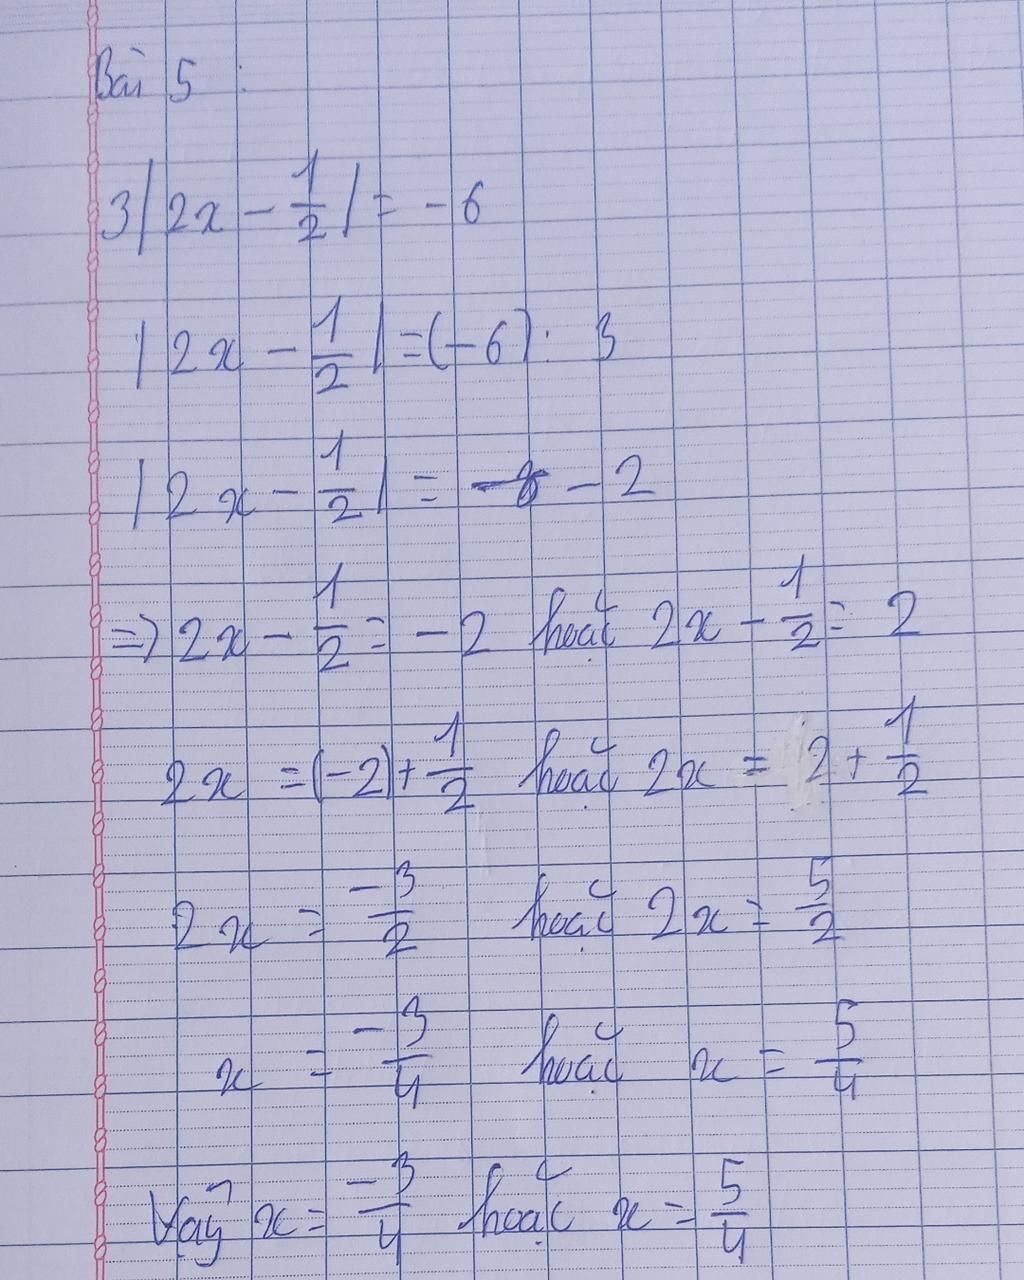 Bài 5 :
3|2x - 1/2| = -6
|2x - 1/2| = (-6) : 3
|2x - 1/2| = - 2
=> 2x - 1/2 = -2 hoặc 2x - 1/2 = 2
2x = (-2) + 1/2 hoặc 2x = 2 + 1/2
2x = -3/2 hoặc 2x = 5/2
x = -3/4 hoặc x = 5/4
Vậy x = -3/4 hoặc x = 5/4